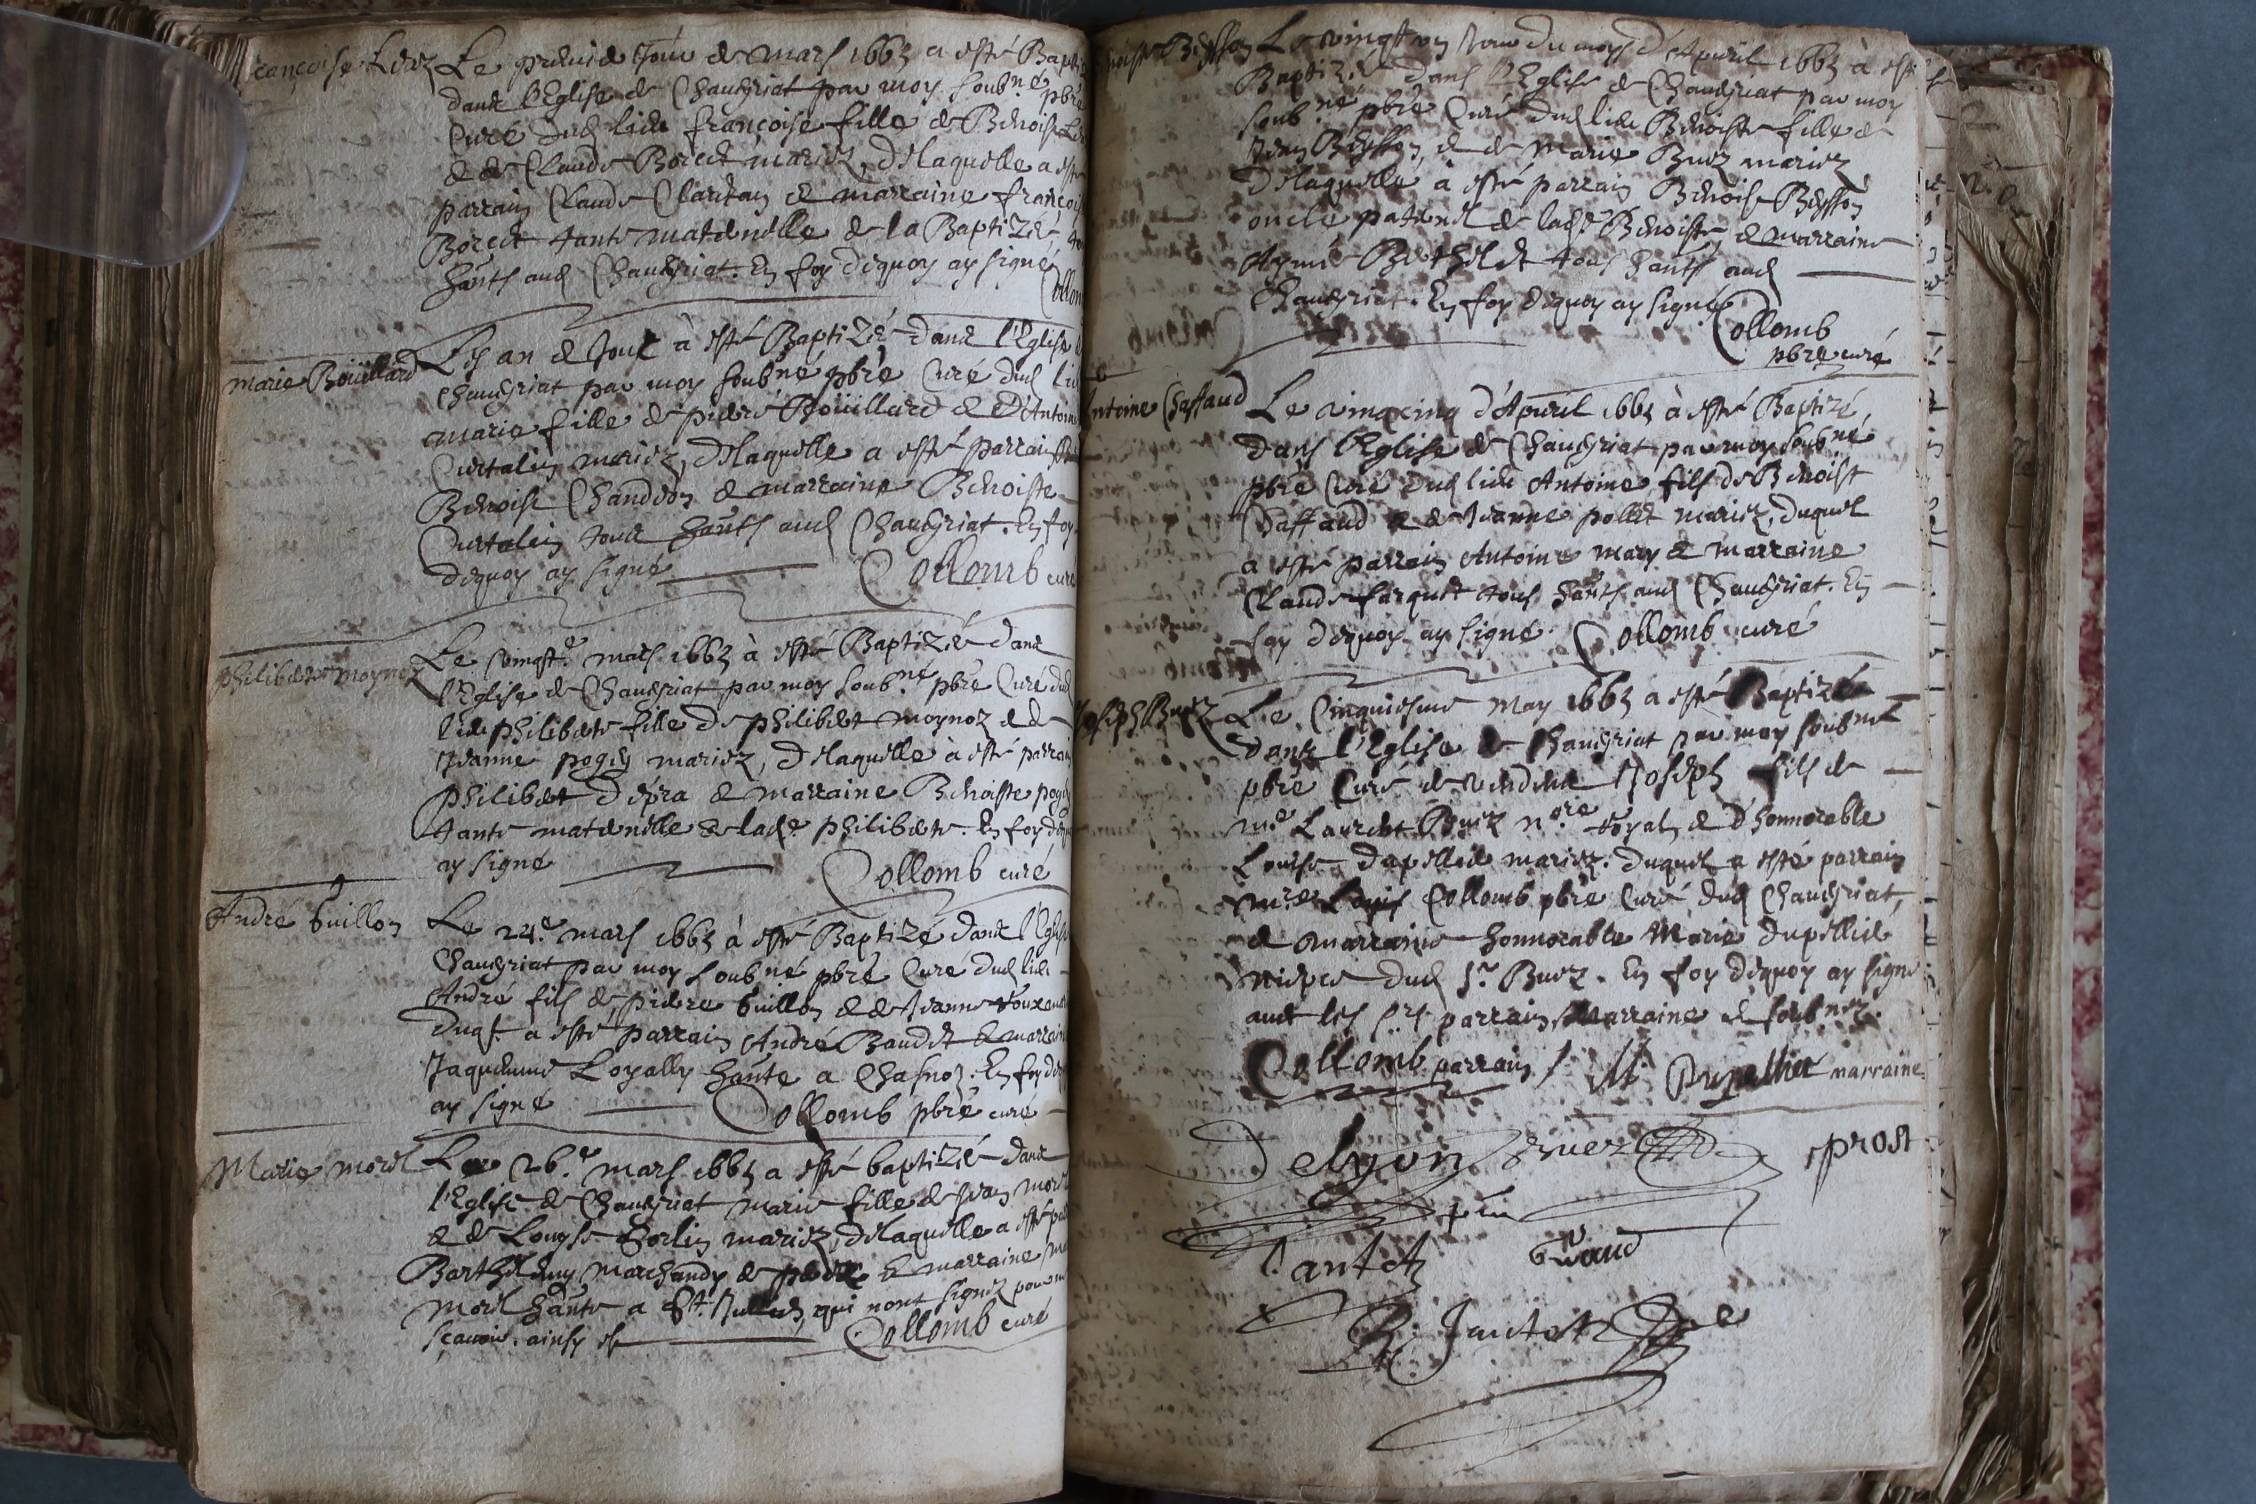 Le premier Jour de Mars 1663 a esté Bapti
dans l'Eglise de Chaveyriat par moy soub.né pbre
Curé dud lieu françoise fille de Benoist
& de Claude Borect mariez, delaquelle a esté
parrain Claude & marraine françoi
Borect tante maternelle de la Baptizée,
hânts aud Chaveyriat. En foy dequoy ay signé
Collom
Marie Boüillard
Les an & Jour à esté Baptizée dans l'Eglise d
Chaveyriat par moy soubné pbre Curé dud lie
Marie fille de pierre Boüillard & d'Antoine
Curtalin mariez, delaquelle a esté parrain
Benoist Chanddon & marraine Benoiste
Curtalin tous hânts aud Chaveyriat. En foy
dequoy ay signé Collomb curé
philiberte moynoz
Le vingt.e mars 1663 à esté Baptizée dans
l'Eglise de Chaveyriat par moy soub.né pbre Curé dud
lieu philiberte fille de philibert moynoz & de
Jeanne pogin mariez, delaquelle à esté parrain
philibert dépra & marraine Benoiste pogin
tante maternelle de lad.e philiberte. En foy deq
ay signé Collomb curé
André Guillon
Le 24.e mars 1663 à esté Baptizé dans l'Eglise
Chaveyriat par moy soub.né pbre Curé dud lieu
André fils de pierre Guillon & de Jeanne
duq.l a esté parrain André Baudet & marraine
Jaquemine Loyally hânte a Chasnoz. En foy deq
ay signé Collomb pbre curé
Marie morel
Le 26.e mars 1663 a esté baptizée dans
l'Eglise de Chaveyriat marie fille de Jean morel
& de Louyse Gorlin mariez, delaquelle a esté pa
Barthelemy Marchandy & marraine
morel hânte a St. Jullien, qui nont signez pour n
sçavoir. ainsy est Collomb curé
Benoiste Beysson
Le vingt un Jour du moys d'Apvril 1663 à esté
Baptizée dans l'Eglise de Chaveyriat par moy
soub.né pbre Curé dud lieu Benoiste fille de
Jean Beysson & de Marie Buez mariez
delaquelle à esté parrain Benoist Beysson
oncle paternel de lad.e Benoiste & marraine
Aymé Berthelet tous hânts aud
Chaveyriat. En foy dequoy ay signé
Collomb
pbre curé
Antoine Chaffaud
Le vingtcinq d'Apvril 1663 à esté Baptizé,
dans l'Eglise de Chaveyriat par moy soubné
pbre Curé dud lieu Antoine, fils de Benoist
Chaffaud & de Jeanne pollet mariez, duquel
a esté parrain Antoine mary & marraine
Claude farguet tous hânts aud Chaveyriat. En
foy dequoy ay signé. Collomb curé
Joseph Buez
Le Cinquiesme May 1663 a esté Baptizé
dans l'Eglise de Chaveyriat par moy soubné
pbre Curé de Joseph fils de
M.e Laurent Buez n.ore royal & d'honnorable
Louise dupellier mariez. duquel a esté parrain
M.re Louis Collomb pbre Curé dud Chaveyriat,
& marraine honnorable Marie dupellier
niepce dud S.r Buez. En foy dequoy ay signé
avec les parrain, Marraine & soubnez.
Collomb parrain / M Dupellier marraine
Delyon Buez prost
Jantet
R. Jantet